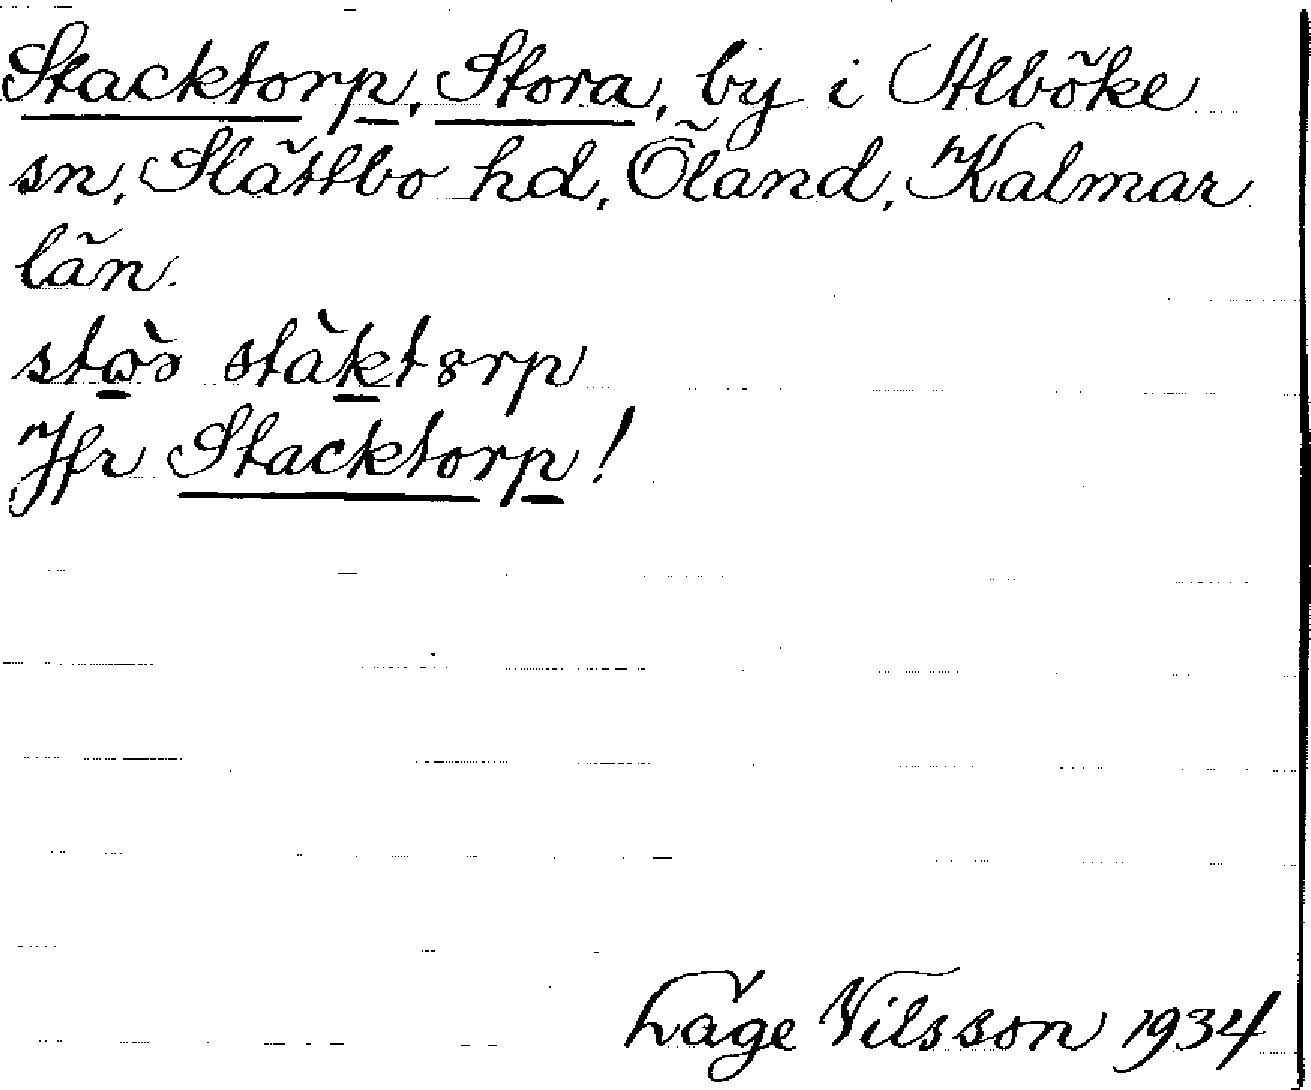 Stacktorp, Stora, by i Alböke
sn, Slättbo hd, Öland, Kalmar
län.
Jfr Stacktorp!
Låge Nilsson 1934